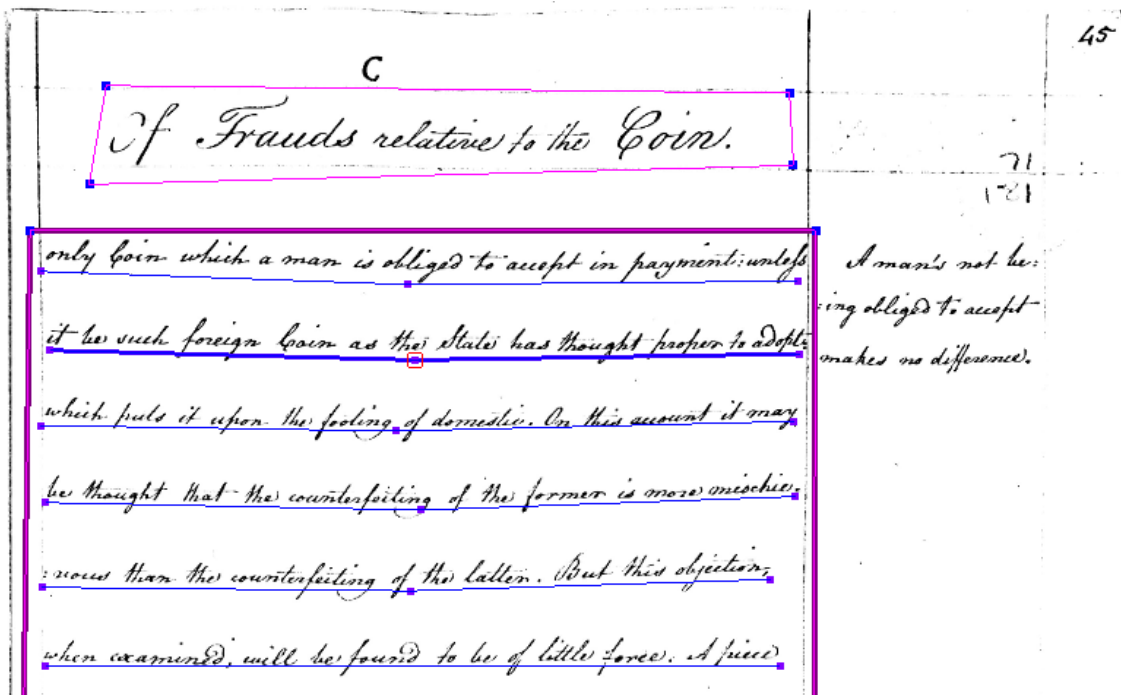 45
C
Of Frauds relative to the Coin.
71
181
only Coin which a man is obliged to accept in payment: unless
it be such foreign Coin as the State has thought proper to adopt:
which puts it upon the footing of domestic. On this account it may
be thought that the counterfeiting of the former is more mischie:
:vous than the counterfeiting of the latter. But this objection,
when examined, will be found to be of little force. A piece
A man's not be:
:ing obliged to accept
makes no difference.